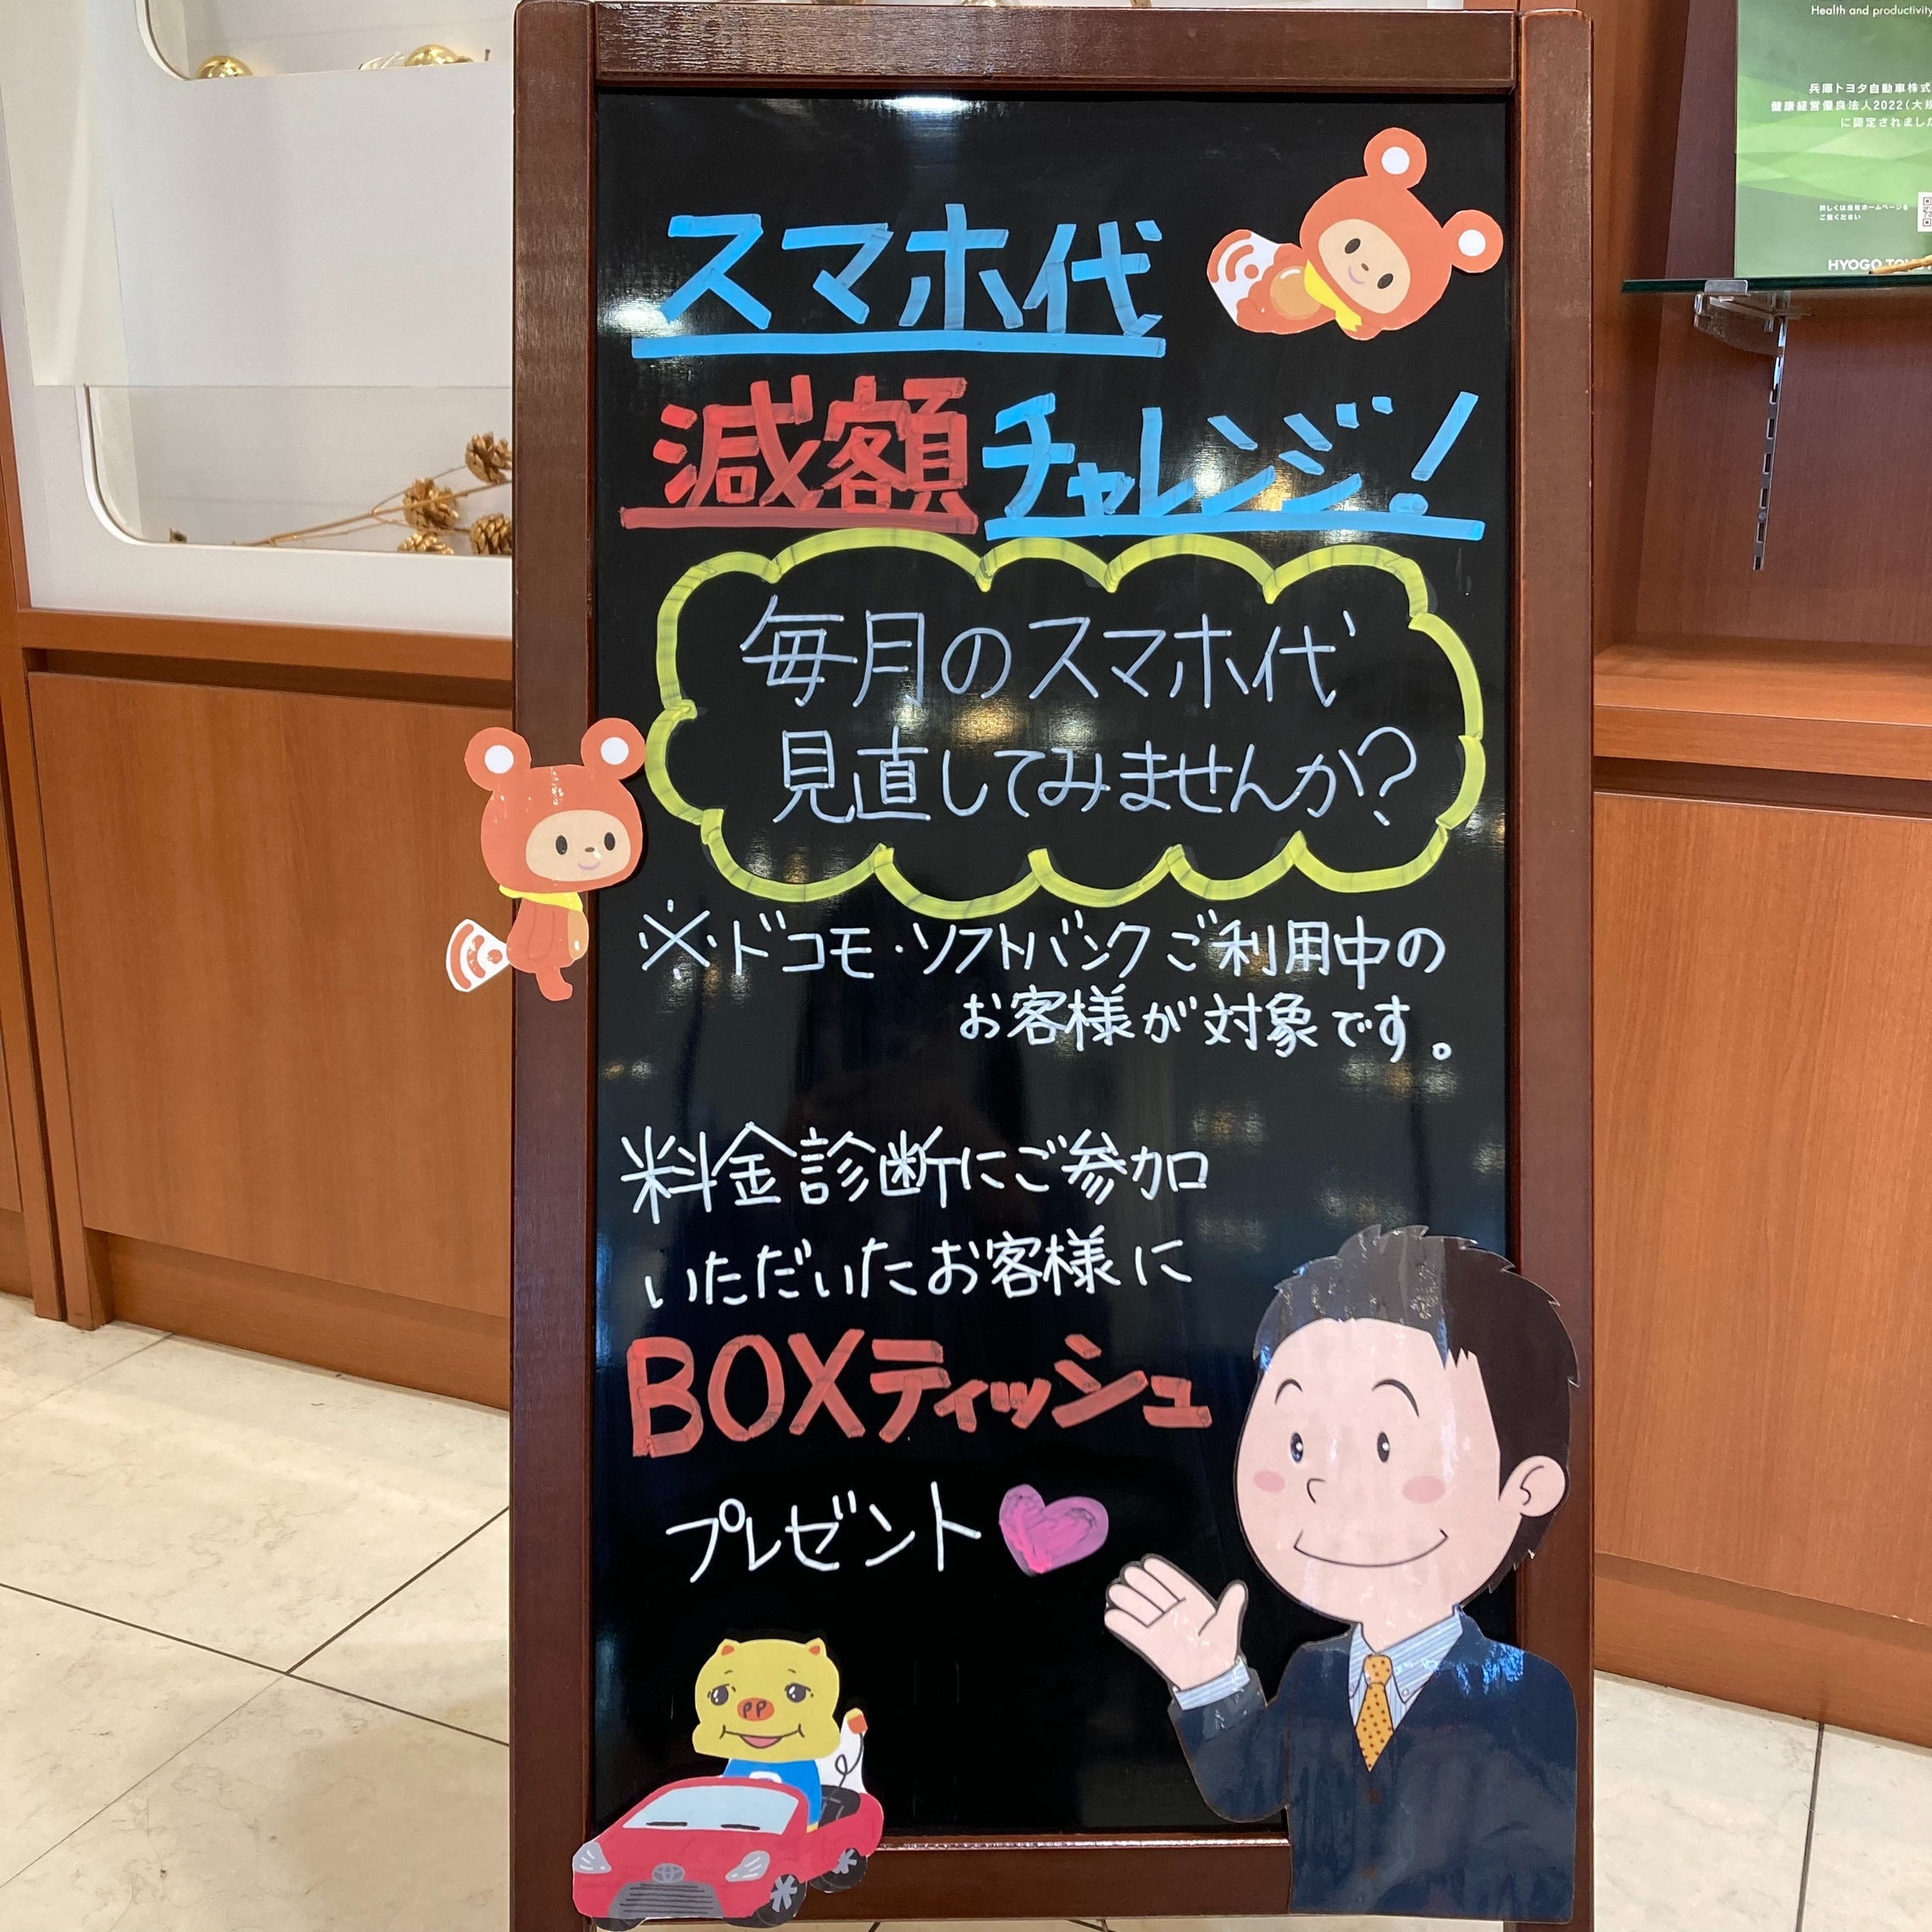 スマホ代
減額チャレンジ!
毎月のスマホ代
見直してみませんか?
※ドコモ・ソフトバンクご利用中の
お客様が対象です。
料金診断にご参加
いただいたお客様に
BOXティッシュ
プレゼント
Health and productivity
兵庫トヨタ自動車株式
健康経営優良法人2022(大規
に認定されました
詳しくは当社ホームページを
ご覧ください
HYOGO TOY